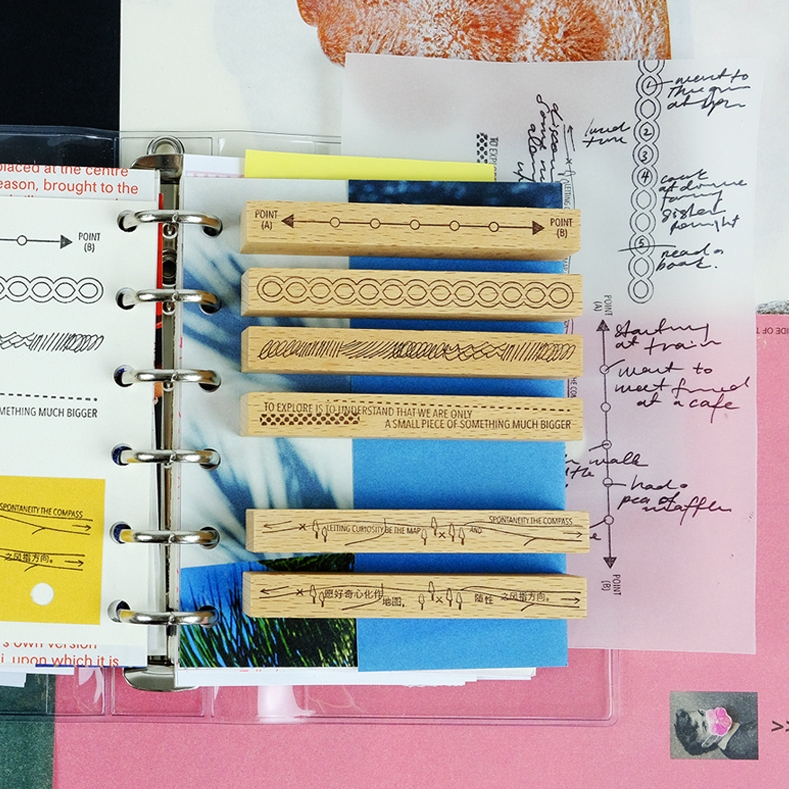 placed at the centre
eason, brought to the
POINT
(B)
METHING MUCH BIGGER
SPONTANEITY THE COMPASS
之风指方向。
's own version
upon which it is
POINT
(A)
POINT
(B)
TO EXPLORE IS TO UNDERSTAND THAT WE ARE ONLY
A SMALL PIECE OF SOMETHING MUCH BIGGER
LETTING CURIOSITY BE THE MAP
AND
SPONTANEITY THE COMPASS
愿好奇心化作
地图,
随性
之风指方向。
1
went to
at
2
3
4
5
read a
book.
POINT
(A)
starting
at train
went to
meet friend
at a cafe
walk
had a
POINT
(B)
TO EXPL
LETTING
SIDE OF T